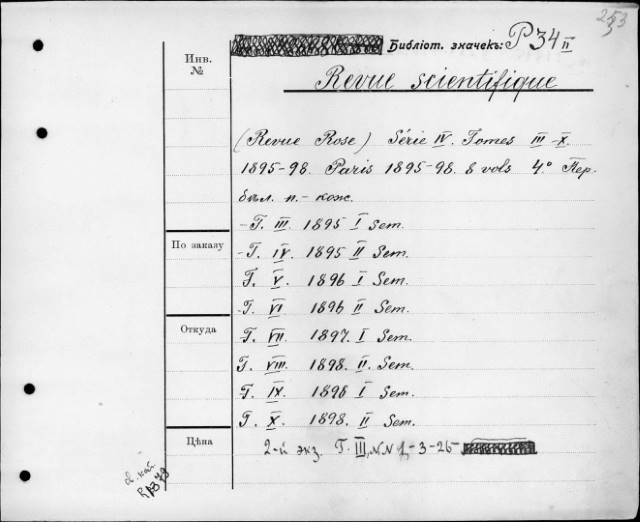 253
Библіот. значекъ: P 34 II
Инв. №
Revue scientifique
(Revue Rose) Série IV. Tomes III-X.
1895-98. Paris 1895-98. 8 vols 4.° Пер.
бѣл. п.-кож.
- T. III. 1895 I Sem.
По заказу
- T. IV. 1895 II Sem.
T. V. 1896 I Sem.
T. VI 1896 II Sem.
Откуда
T. VII. 1897. I Sem.
T. VIII. 1898. II. Sem.
T. IX. 1898 I Sem.
T. X. 1898. II Sem.
Цѣна
2-й экз. T. III, N.N 1,-3-25